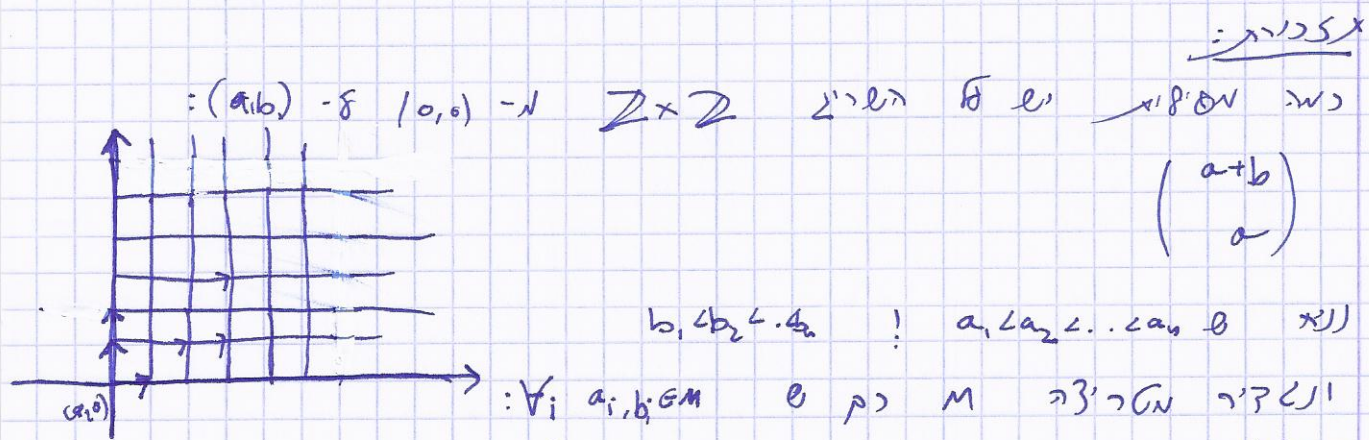 תזכורת:
כמה מסילות יש על השריג Z×Z מ- (0,0) ל- (a,b):
(a+b
a)
נניח ש a₁<a₂<..<aₙ ו b₁<b₂<..<bₙ
ונגדיר מטריצה M כך ש ∀i aᵢ,bᵢ∈M:
(0,0)